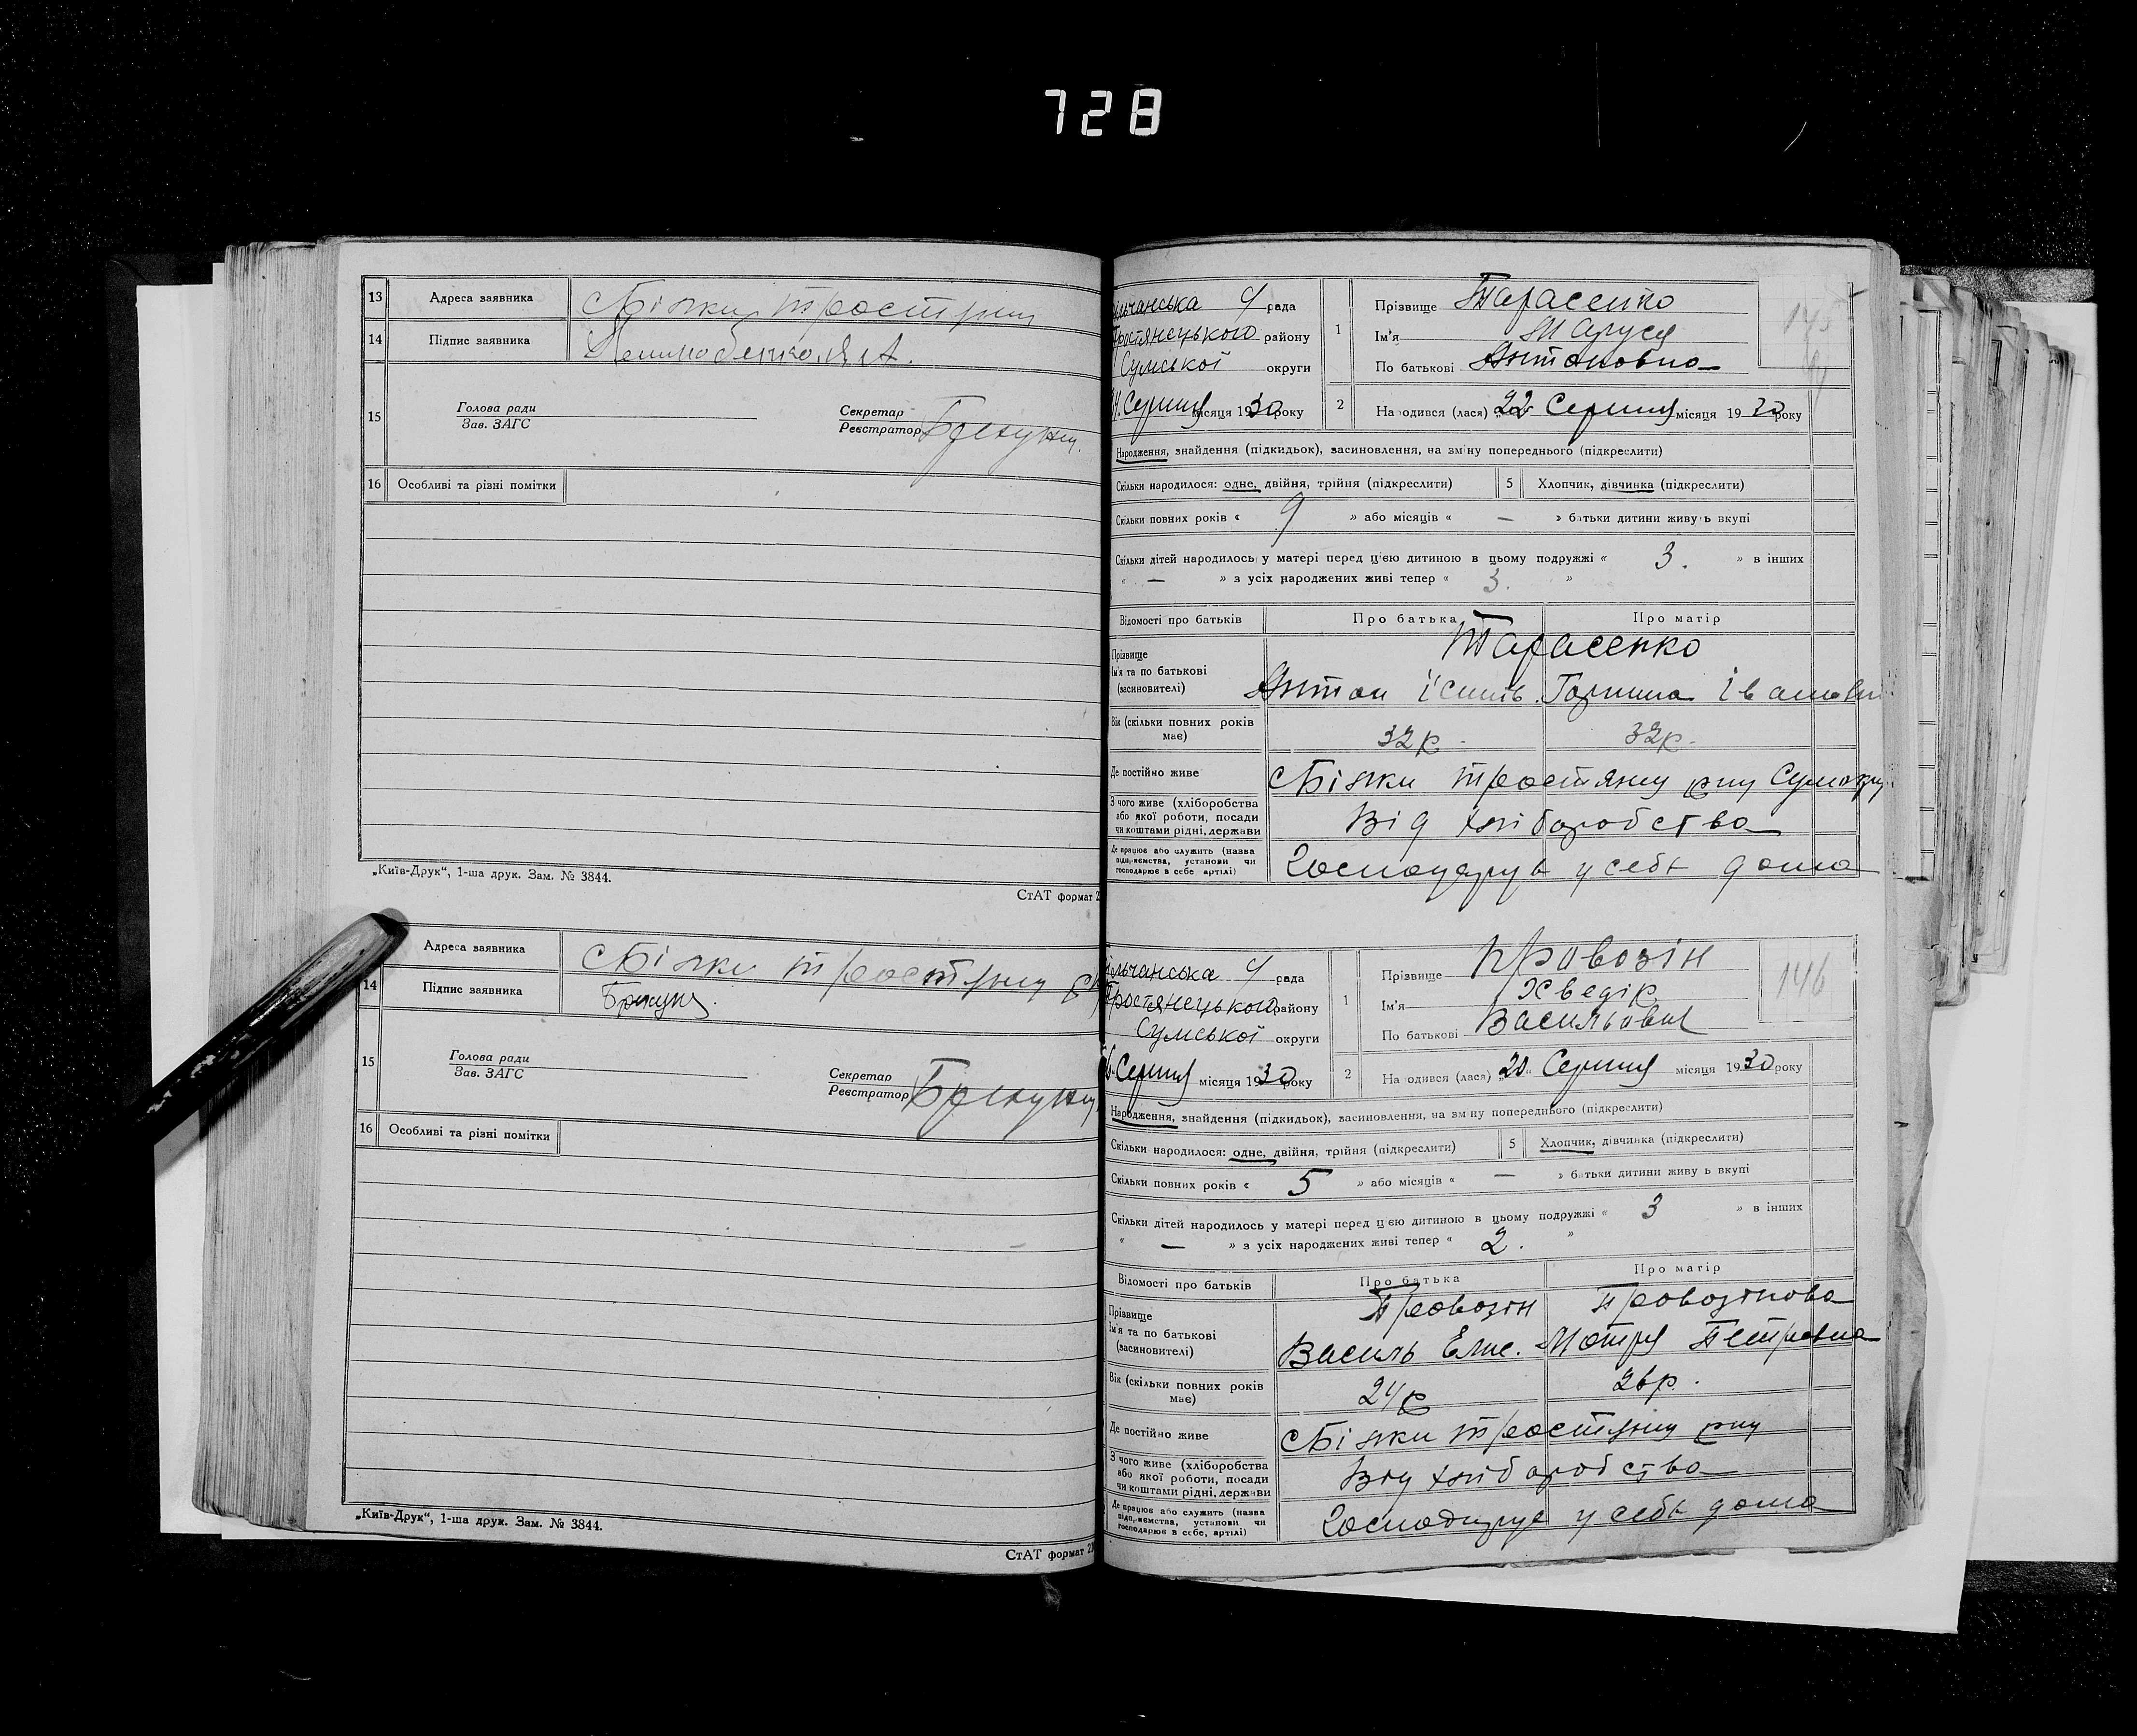 728
13 Адреса заявника с Білки Тростяну
14 Підпис заявника
15 Голова ради
Зав. ЗАГС
Секретар
Реєстратор
16 Особливі та різні помітки
„Київ-Друк“, 1-ша друк. Зам. № 3844.
СтАТ формат 2
Адреса заявника с Білки Тростяну
14 Підпис заявника
15 Голова ради
Зав. ЗАГС
Секретар
Реєстратор
16 Особливі та різні помітки
„Київ-Друк“, 1-ша друк. Зам. № 3844.
СтАТ формат 2
ільчанська С/рада
Тростянецького району
Сумської округи
Серпня місяця 1930 року
1 Прізвище Тарасенко
Ім'я Маруся
По батькові Антоновна
145
2 На одився (лася) „22“ Серпня місяця 1930 року
Народження, знайдення (підкидьок), засиновлення, на зміну попереднього (підкреслити)
Скільки народилося: одне, двійня, трійня (підкреслити) 5 Хлопчик, дівчинка (підкреслити)
Скільки повних років « 9 » або місяців « — » батьки дитини живуть вкупі
Скільки дітей народилось у матері перед цією дитиною в цьому подружжі « 3. » в інших
« — » з усіх народжених живі тепер « 3. »
Відомості про батьків Про батька Про матір
Прізвище Тарасенко
Ім'я та по батькові
(засиновителі) Антон Горпина Івановн
Вік (скільки повних років має) 32 р. 32 р.
Де постійно живе с Білки Тростяну рну Сум окру
З чого живе (хліборобства або якої роботи, посади чи коштами рідні, держави Від хліборобства
Де працює або служить (назва підприємства, установи чи господарює в себе артілі) Господарує у себе дома
ільчанська С/рада
Тростянецького району
Сумської округи
Серпня місяця 1930 року
1 Прізвище Провозін
Ім'я Хведір
По батькові Васильович
146
2 На одився (лася) Серпня місяця 1930 року
Народження, знайдення (підкидьок), засиновлення, на зміну попереднього (підкреслити)
Скільки народилося: одне, двійня, трійня (підкреслити) 5 Хлопчик, дівчинка (підкреслити)
Скільки повних років « 5 » або місяців « — » батьки дитини живу ь вкупі
Скільки дітей народилось у матері перед цією дитиною в цьому подружжі « 3 » в інших
« — » з усіх народжених живі тепер « 2. »
Відомості про батьків Про батька Про матір
Прізвище Провозін Провозінова
Ім'я та по батькові
(засиновителі) Василь Елис. Мотря Петровна
Вік (скільки повних років має) 24 р 26 р.
Де постійно живе с Білки Тростяну рну
З чого живе (хліборобства або якої роботи, посади чи коштами рідні, держави Від хліборобства
Де працює або служить (назва підприємства, установи чи господарює в себе, артілі) Господарує у себе дома